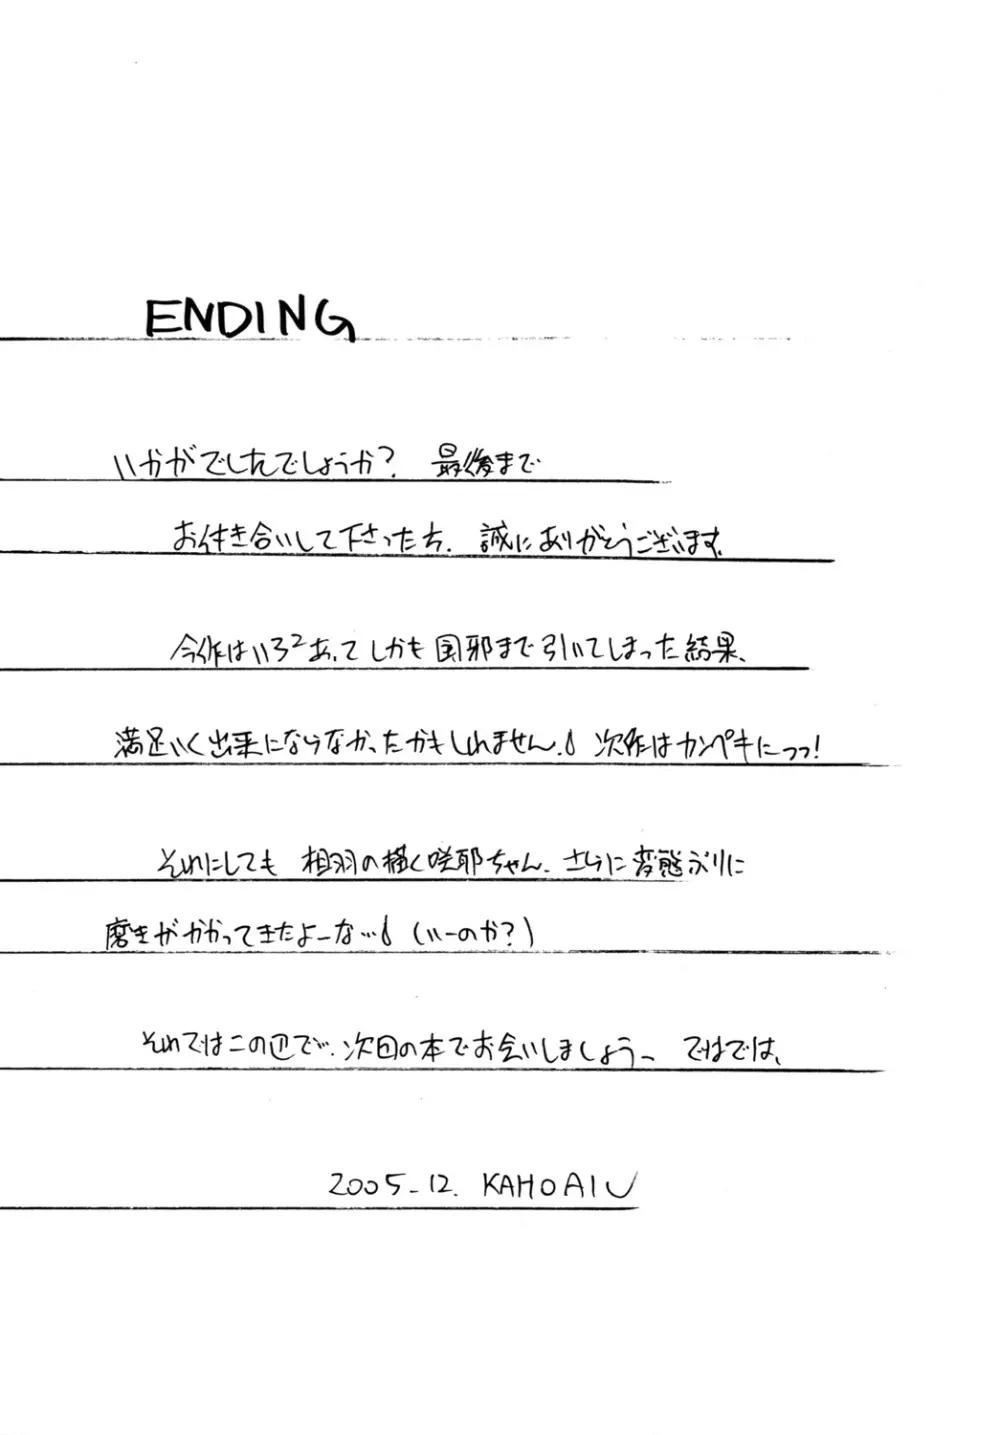 ENDING
いかがでしたでしょうか? 最後まで
お付き合いして下さった方、誠にありがとうございます。
今作はいろ²あってしかも風邪まで引いてしまった結果、
満足いく出来にならなかったかもしれません。次作はカンペキにっっ!
それにしても 相羽の描く咲耶ちゃん、さらに変態ぶりに
磨きがかかってきたよーな… (いーのか?)
それではこの辺で、次回の本でお会いしましょう。 ではでは、
2005-12. KAHOAIU